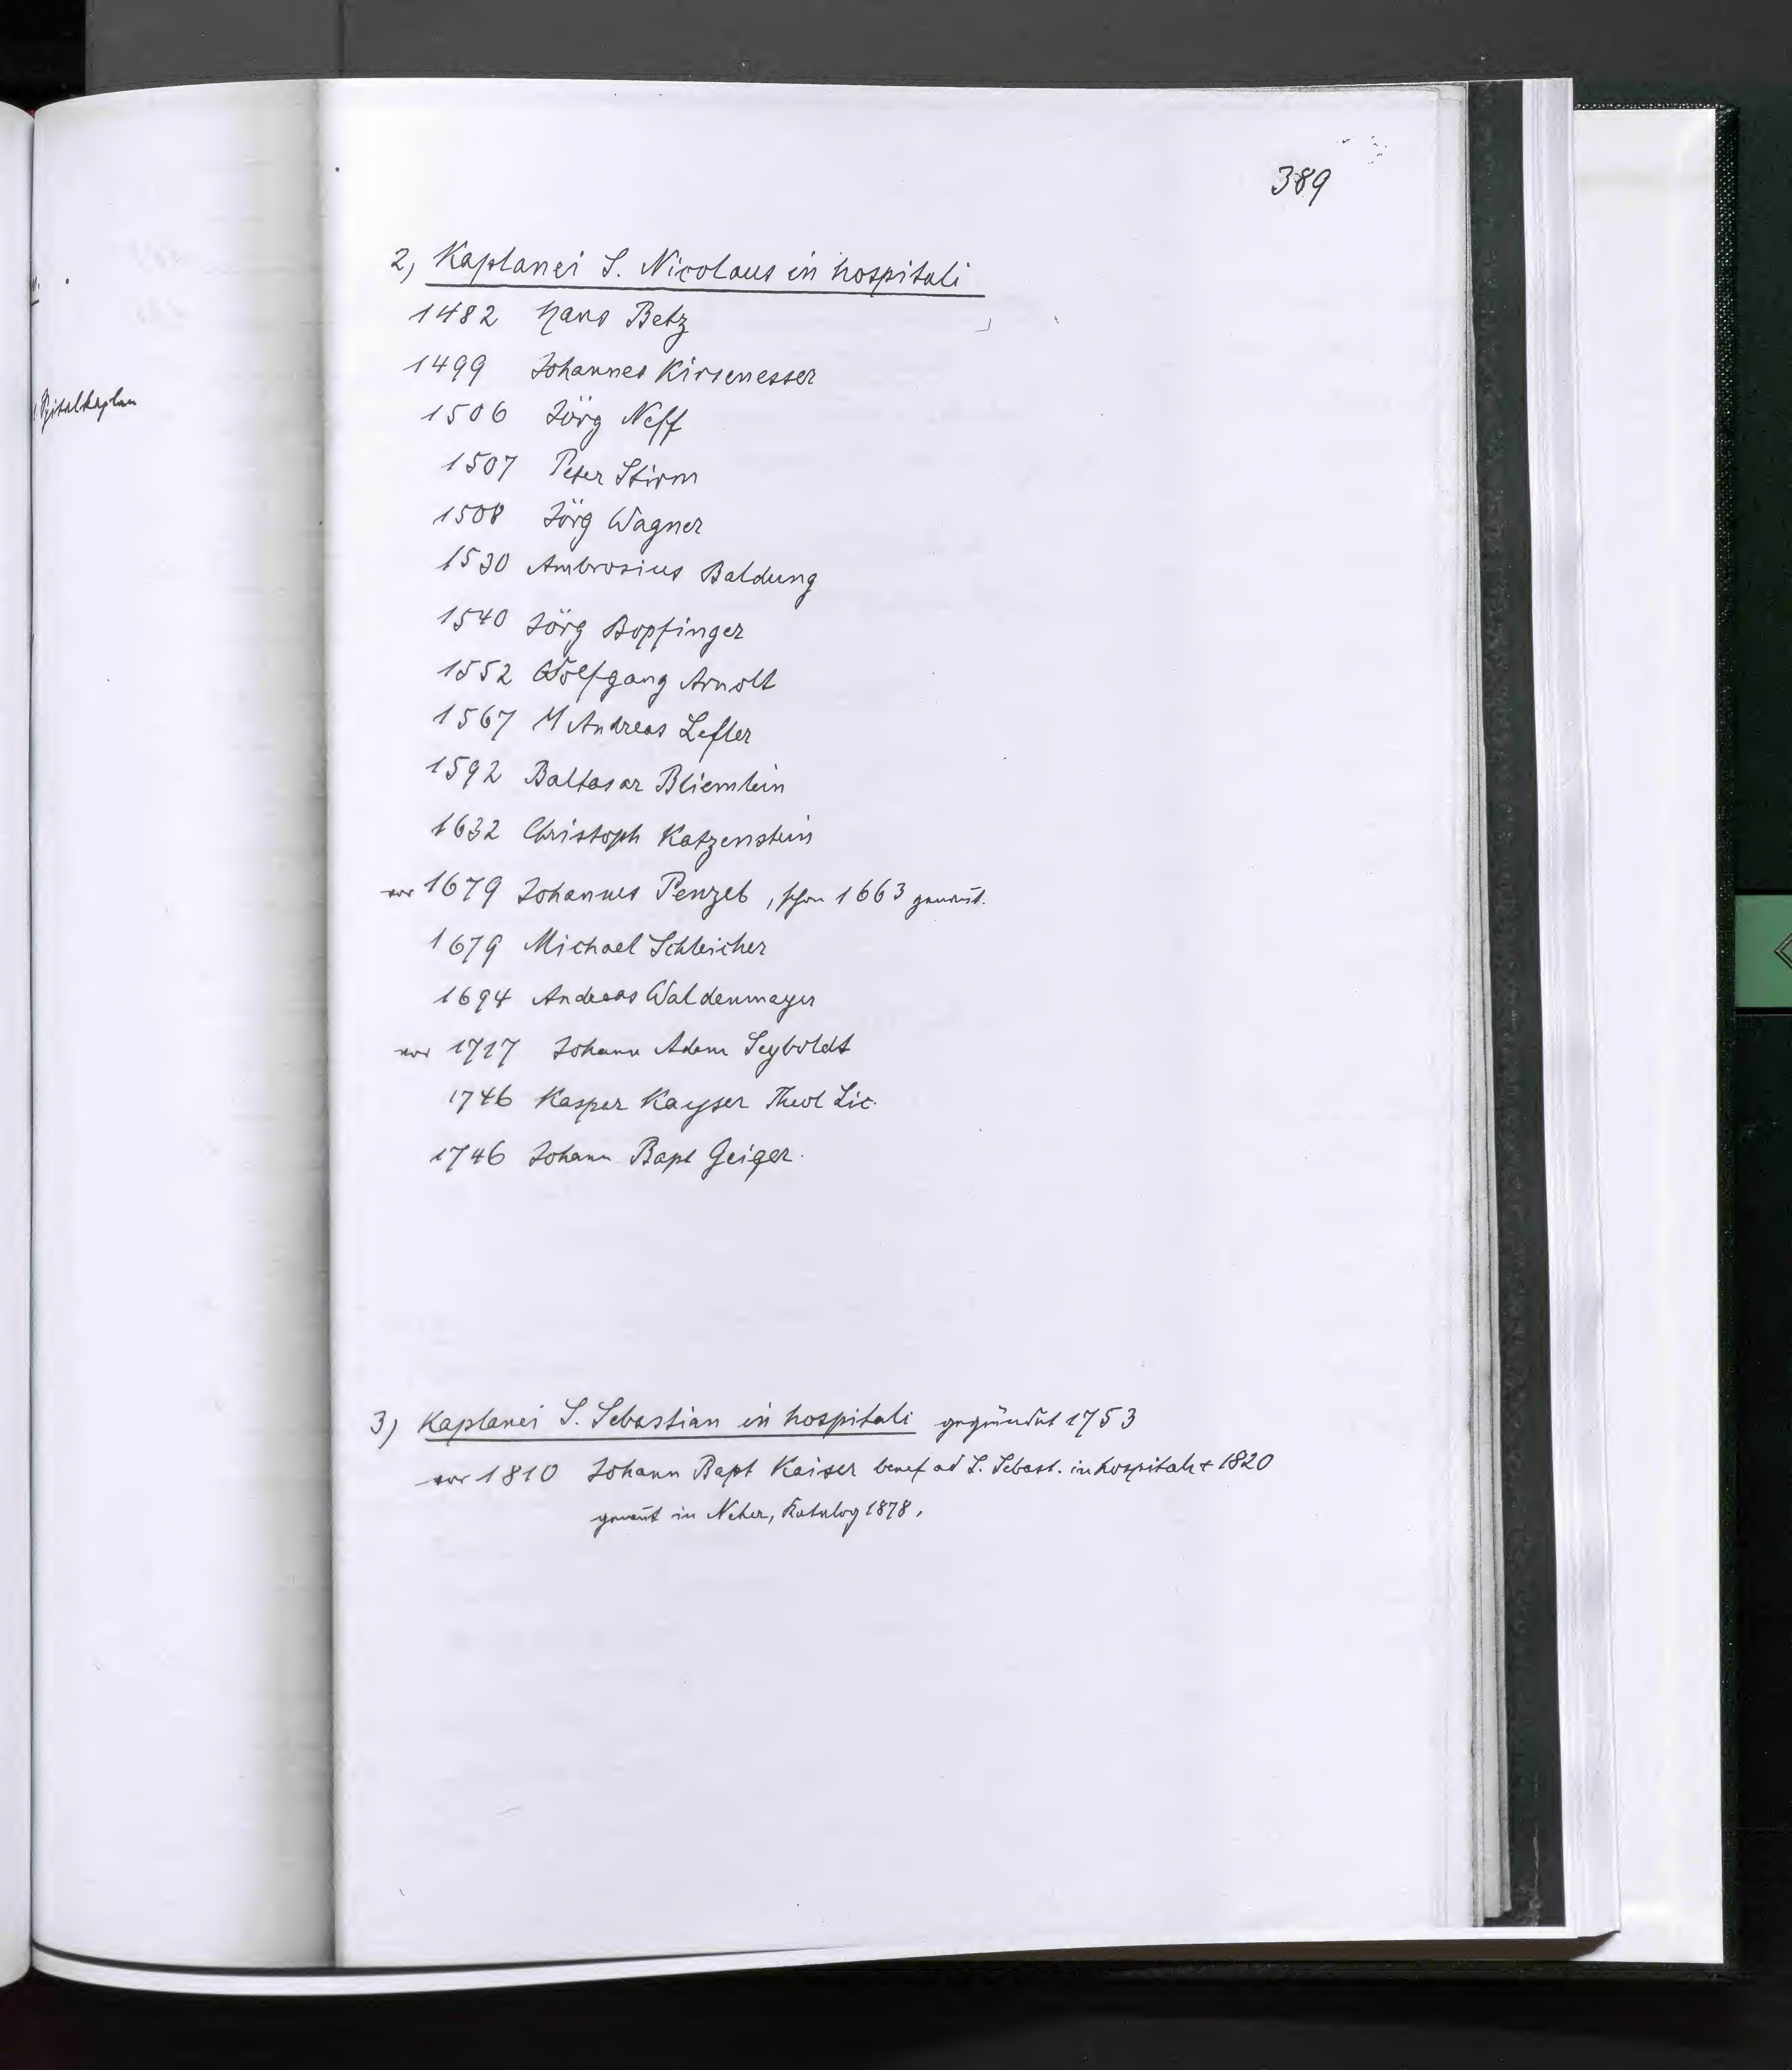 389
Spitalkaplan
2, Kaplanei S. Nicolaus in hospitali
1482 Hans Betz
1499 Johannes Kirsenesser
1506 Jörg Neff
1507 Peter Stirm
1508 Jörg Wagner
1530 Ambrosius Baldung
1540 Jörg Bopfinger
1552 Wolfgang Arnolt
1567 M Andreas Lefler
1592 Baltasar Bliemlein
1632 Christoph Katzenstein
vor 1679 Johannes Penzel, schon 1663 genannt.
1679 Michael Schleicher
1694 Andreas Waldenmayer
vor 1717 Johann Adam Seyboldt
1746 Kaspar Kayser Theol Lic.
1746 Johann Bapt Geiger.
3) Kaplanei S. Sebastian in hospitali gegründet 1753
vor 1810 Johann Bapt Kaiser benef ad S. Sebast. in hospitali + 1820
genannt in Neher, Katalog 1878.